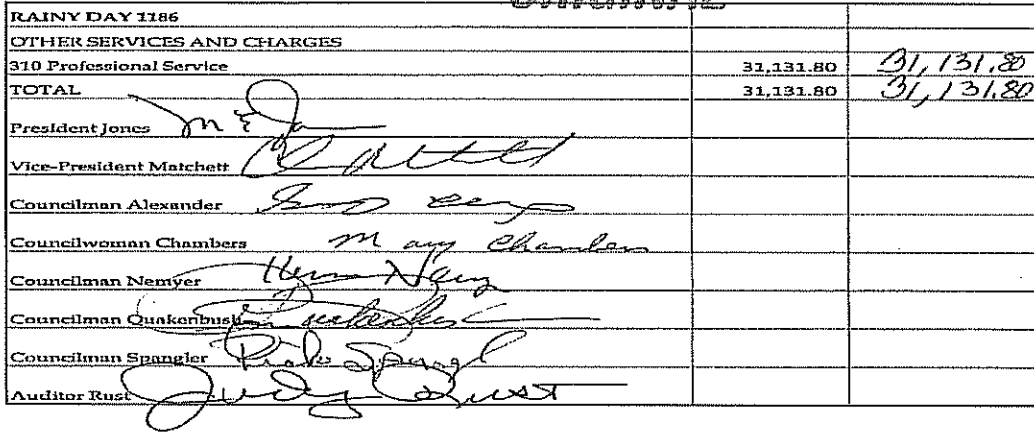 RAINY DAY 1186
OTHER SERVICES AND CHARGES
310 Professional Service 31,131.80 31,131.80
TOTAL 31,131.80 31,131.80
President Jones
Vice-President Matchett
Councilman Alexander
Councilwoman Chambers Mary Chambers
Councilman Nemyer
Councilman Quakenbush
Councilman Spangler
Auditor Rust Judy Rust